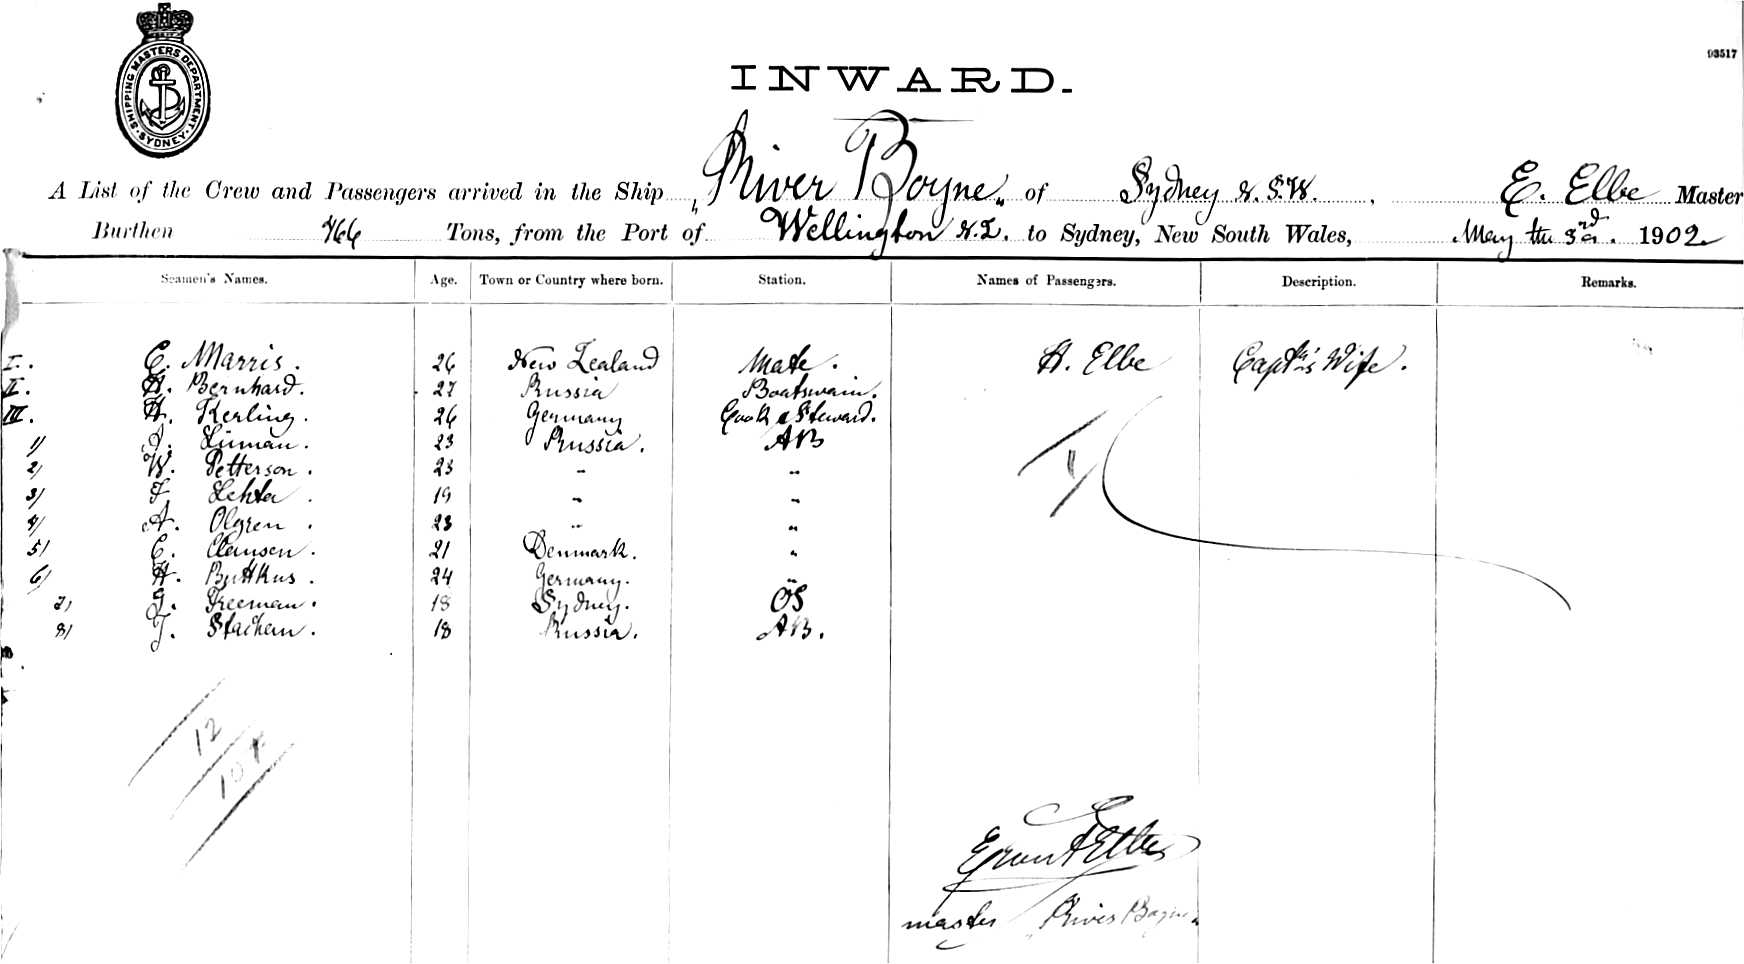 SHIPPING MASTERS DEPARTMENT · SYDNEY ·
93517
INWARD.
A List of the Crew and Passengers arrived in the Ship „River Boyne„ of Sydney N.S.W. E. Elbe Master
Burthen 766 Tons, from the Port of Wellington N.Z. to Sydney, New South Wales, May the 3rd. 1902
Seamen's Names. Age. Town or Country where born. Station. Names of Passengers. Description. Remarks.
I. C. Marris. 26 New Zealand Mate. H. Elbe Capt's Wife.
II. H. Bernhard. 27 Russia Boatswain.
III. H. Kerling. 26 Germany Cook & Steward.
1) Linman. 23 Russia. AB
2) W. Petterson. 23 " "
3) F. Lehta. 19 " "
4) A. Olgren. 23 " "
5) C. Clausen. 21 Denmark. "
6) H. Buttkus. 24 Germany. "
7) Freeman. 18 Sydney. OS
8) J. Stachem. 18 Russia. AB.
1/
12
Elbe
master „River Boyne„